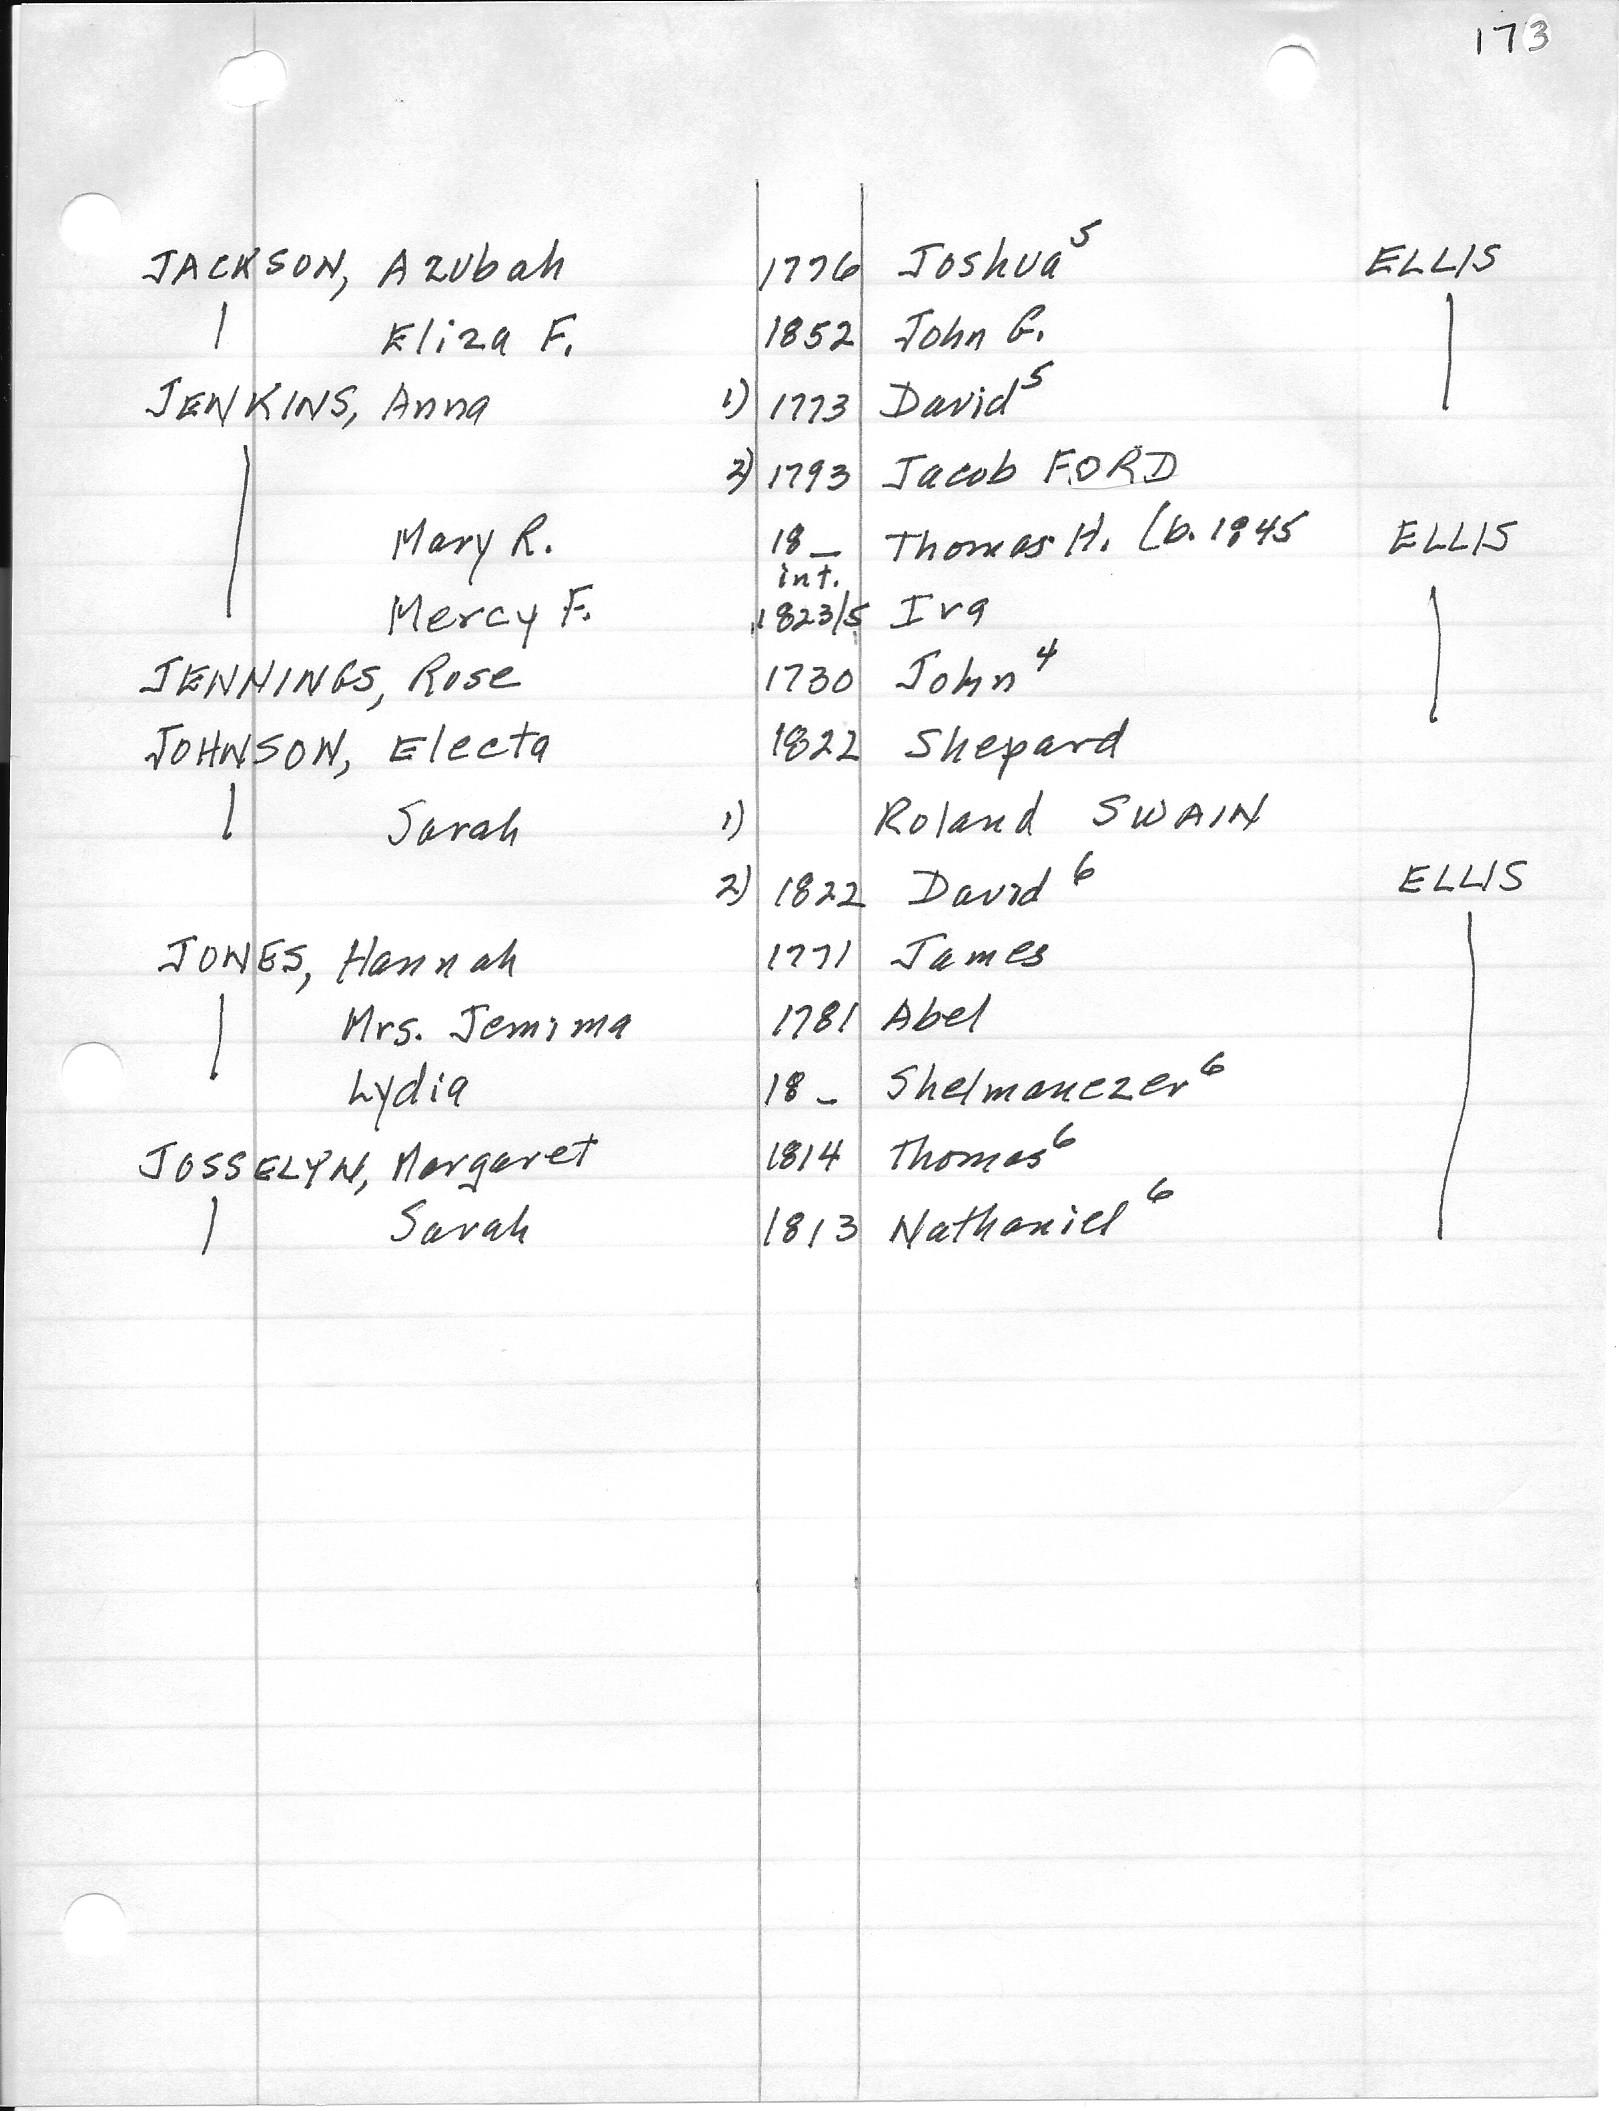 173
JACKSON, Azubah 1776 Joshua⁵ ELLIS
Eliza F. 1852 John G.
JENKINS, Anna 1) 1773 David⁵
2) 1793 Jacob FORD
Mary R. 18_ Thomas H. (b. 1845 ELLIS
int.
Mercy F. 1823/5 Ira
JENNINGS, Rose 1730 John⁴
JOHNSON, Electa 1822 Shepard
Sarah 1) Roland SWAIN
2) 1822 David⁶ ELLIS
JONES, Hannah 1771 James
Mrs. Jemima 1781 Abel
Lydia 18_ Shelmanezer⁶
JOSSELYN, Margaret 1814 Thomas⁶
Sarah 1813 Nathaniel⁶